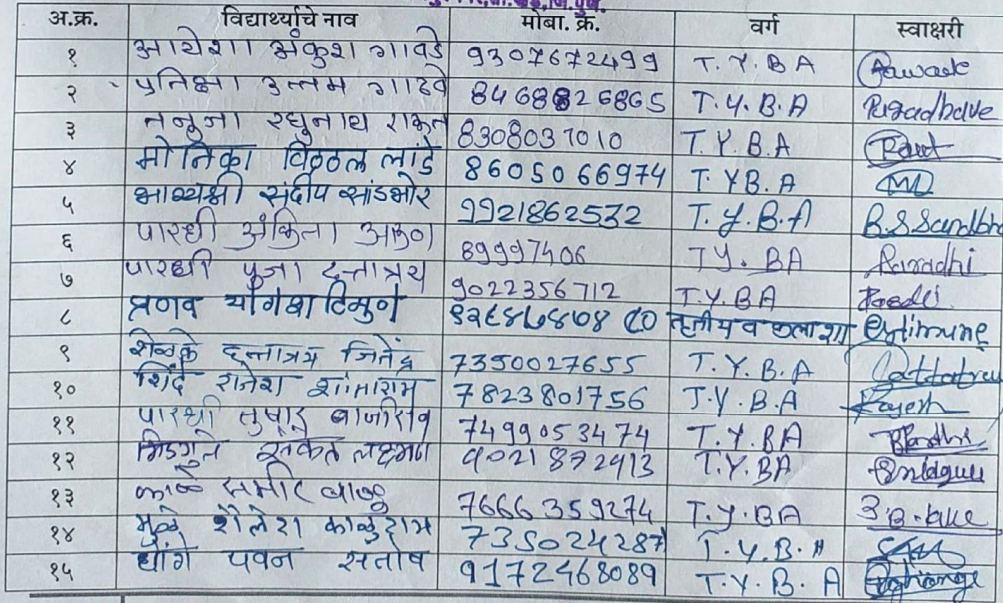 अ.क्र. विद्यार्थ्याचे नाव मोबा. क्र. वर्ग स्वाक्षरी
१ आयेशा अंकुश गावडे 9307672499 T.Y.BA Gawade
२ प्रतिक्षा उत्तम गाढवे 8468826865 T.Y.B.A Pugadhave
३ तनुजा रघुनाथ राऊत 8308037010 T.Y.B.A Raut
४ मोनिका विठ्ठल लांडे 8605066974 T.YB.A
५ भाग्यश्री संदीप सांडभोर 9921862532 T.Y.B.A B.S Sandbho
६ पारधी अंकिता अरुण 89997406 TY.BA Paradhi
७ पारधी पुजा दत्तात्रय 9022356712 T.Y.BA
८ प्रणव योगेश टिमुणे तृतीय व कला शा Pytimune
९ शेळके दत्तात्रय जितेंद्र 7350027655 T.Y.B.A Dattatray
१० शिंदे राजेश शांताराम 7823801756 T.Y.B.A Rajesh
११ पारधी तुषार बाजीराव 7499053474 T.Y.BA
१२ साकेत लक्ष्मण 9021872413 T.Y.BA
१३ काळे समीर बाळु 7666359274 T.Y.BA
१४ मुळे शैलेश काळुराम 7350242871 T.Y.B.A
१५ घोगे पवन संतोष 9172468089 T.Y.B.A